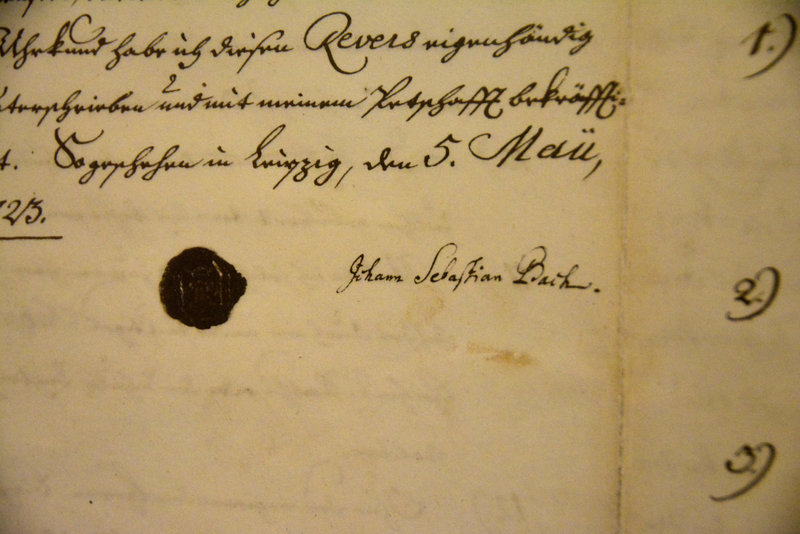 Uhrkund habe ich diesen Revers eigenhändig
terschrieben und mit meinem Petschafft bekräffti=
t. So geschehen in Leipzig, den 5. Maÿ,
723.
Johann Sebastian Bach.
1.)
2.)
3.)